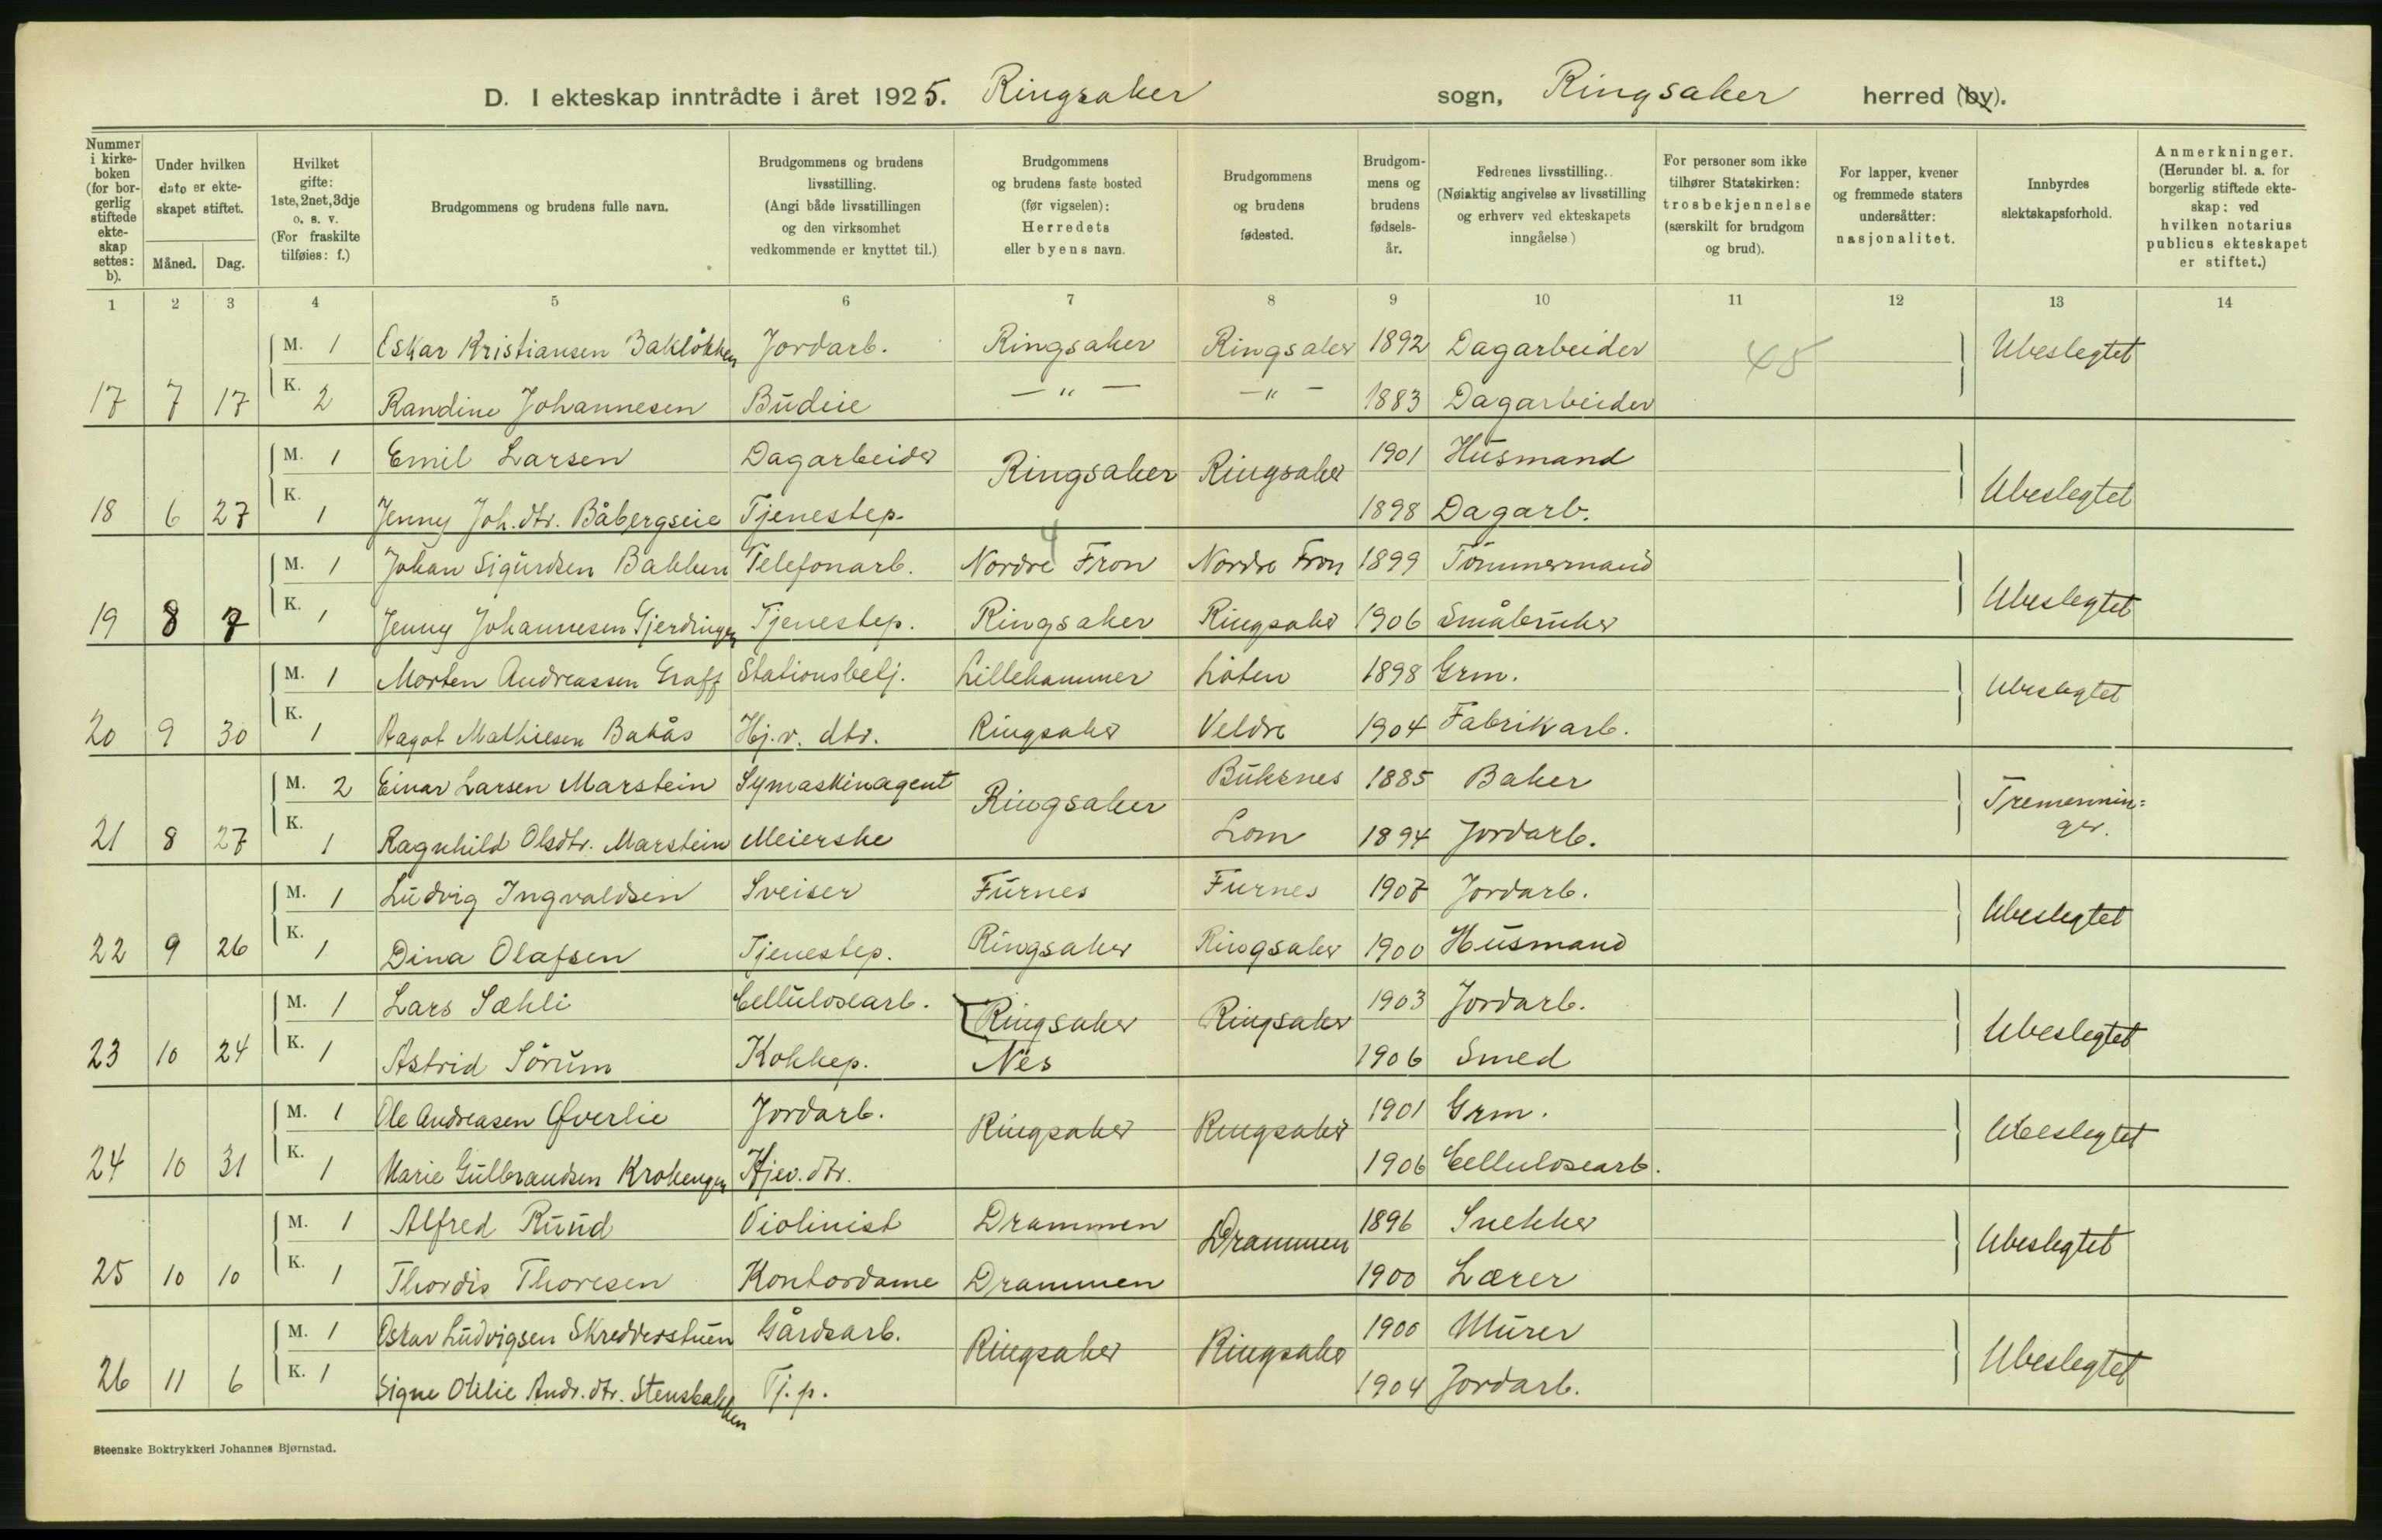 D. I ekteskap inntrådte i året 1925. Ringsaker sogn, Ringsaker herred (by).
Nummer i kirke-boken (for bor-gerlig stiftede ekte-skap settes: b).
Under hvilken dato er ekte-skapet stiftet.
Måned. Dag.
Hvilket gifte: 1ste, 2net, 3dje o. s. v. (For fraskilte tilføies: f.)
Brudgommens og brudens fulle navn.
Brudgommens og brudens livsstilling. (Angi både livsstillingen og den virksomhet vedkommende er knyttet til.)
Brudgommens og brudens faste bosted (før vigselen): Herredets eller byens navn.
Brudgommens og brudens fødested.
Brudgom-mens og brudens fødsels-år.
Fedrenes livsstilling. (Nøiaktig angivelse av livsstilling og erhverv ved ekteskapets inngåelse)
For personer som ikke tilhører Statskirken: trosbekjennelse (særskilt for brudgom og brud).
For lapper, kvener og fremmede staters undersåtter: nasjonalitet.
Innbyrdes slektskapsforhold.
Anmerkninger. (Herunder bl. a. for borgerlig stiftede ekte-skap: ved hvilken notarius publicus ekteskapet er stiftet.)
1 2 3 4 5 6 7 8 9 10 11 12 13 14
M. 1 Eskar Kristiansen Baklökken Jordarb. Ringsaker Ringsaker 1892 Dagarbeider 45 Ubeslegtet
17 7 17 K. 2 Randine Johannesen Budeie — " — — " — 1883 Dagarbeider
M. 1 Emil Larsen Dagarbeider Ringsaker Ringsaker 1901 Husmand Ubeslegtet
18 6 27 K. 1 Jenny Joh. dtr. Båbergseie Tjenestep. 1898 Dagarb.
4
M. 1 Johan Sigurdsen Bakken Telefonarb. Nordre Fron Nordre Fron 1899 Tömmermand Ubeslegtet
19 8 7 K. 1 Jenny Johannesen Gjerdingen Tjenestep. Ringsaker Ringsaker 1906 Småbruker
M. 1 Morten Andreassen Graff Stationsbetj. Lillehammer Löten 1898 Grm. Ubeslegtet
20 9 30 K. 1 Ragot Mathiesen Bakås Hj.v. dtr. Ringsaker Veldre 1904 Fabrikarb.
M. 2 Einar Larsen Marstein Symaskinagent Ringsaker Buksnes 1885 Baker Tremennin=
ger.
21 8 27 K. 1 Ragnhild Olsdtr. Marstein Meierske Lom 1894 Jordarb.
M. 1 Ludvig Ingvaldsen Sveiser Furnes Furnes 1907 Jordarb. Ubeslegtet
22 9 26 K. 1 Dina Olafsen Tjenestep. Ringsaker Ringsaker 1900 Husmand
M. 1 Lars Sæhli Cellulosearb. Ringsaker Ringsaker 1903 Jordarb. Ubeslegtet
23 10 24 K. 1 Astrid Sörum Kokkep. Nes 1906 Smed
M. 1 Ole Andreasen Øverlie Jordarb. Ringsaker Ringsaker 1901 Grm. Ubeslegtet
24 10 31 K. 1 Marie Gulbrandsen Krokengen Hjev. dtr. 1906 Cellulosearb.
M. 1 Alfred Ruud Violinist Drammen Drammen 1896 Snekker Ubeslegtet
25 10 10 K. 1 Thordis Thoresen Kontordame Drammen 1900 Lærer
M. 1 Oskar Ludvigsen Skredderstuen Gårdsarb. Ringsaker Ringsaker 1900 Murer Ubeslegtet
26 11 6 K. 1 Signe Otilie Andr. dtr. Stensbakken Tj.p. 1904 Jordarb.
Steenske Boktrykkeri Johannes Bjørnstad.